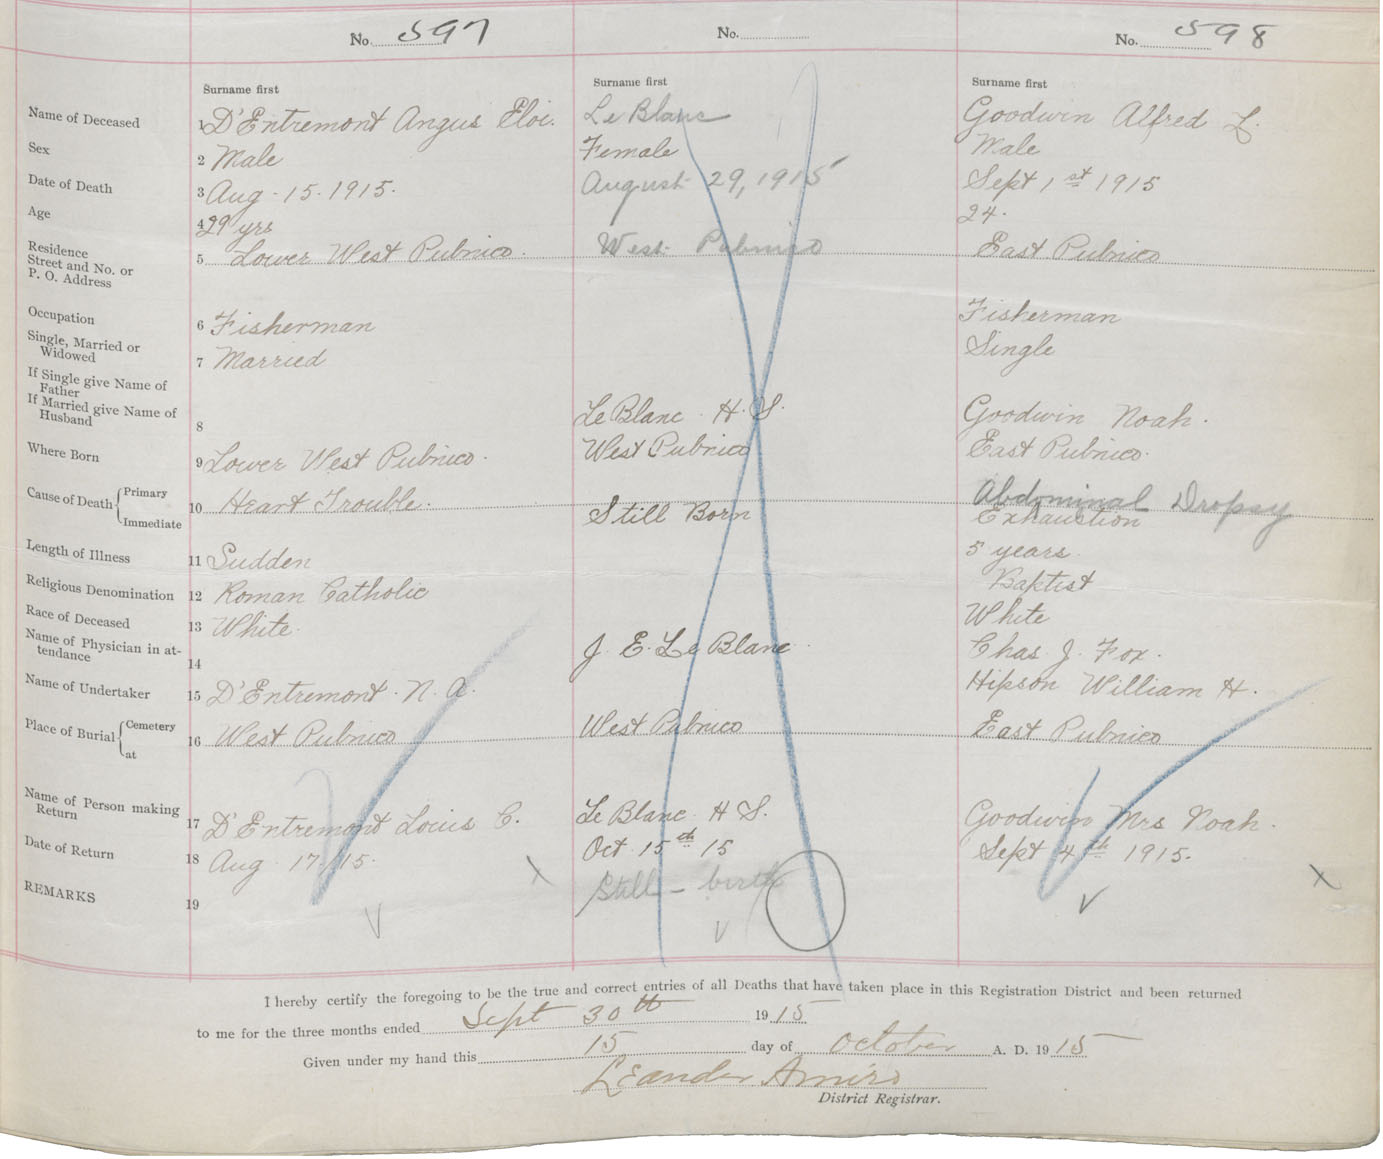 No. 597
No.
No. 598
Surname first
Surname first
Surname first
Name of Deceased 1 D'Entremont Angus Eloi. Le Blanc Goodwin Alfred L.
Sex 2 Male Female Male
Date of Death 3 Aug - 15. 1915. August 29, 1915 Sept 1st 1915
Age 4 29 yrs 24.
Residence
Street and No. or
P. O. Address 5 Lower West Pubnico. West Pubnico East Pubnico
Occupation 6 Fisherman Fisherman
Single, Married or
Widowed 7 Married Single
If Single give Name of
Father
If Married give Name of
Husband 8 Le Blanc H. S. Goodwin Noah.
Where Born 9 Lower West Pubnico. West Pubnico East Pubnico.
Cause of Death { Primary Abdominal Dropsy
Immediate 10 Heart Trouble. Still Born Exhaustion
Length of Illness 11 Sudden 5 years.
Religious Denomination 12 Roman Catholic Baptist
Race of Deceased 13 White. White
Name of Physician in at-
tendance 14 J. E. Le Blanc. Chas. J. Fox.
Name of Undertaker 15 D'Entremont. N. A. Hipson William H.
Place of Burial { Cemetery
at 16 West Pubnico West Pubnico East Pubnico
Name of Person making
Return 17 D'Entremont Louis C. Le Blanc H S. Goodwin Mrs Noah.
Date of Return 18 Aug 17/15. Oct 15th 15 Sept 4th 1915.
REMARKS 19 Still - birth
I hereby certify the foregoing to be the true and correct entries of all Deaths that have taken place in this Registration District and been returned
to me for the three months ended Sept 30th 1915
Given under my hand this 15 day of October A. D. 1915
Leander Amiro
District Registrar.